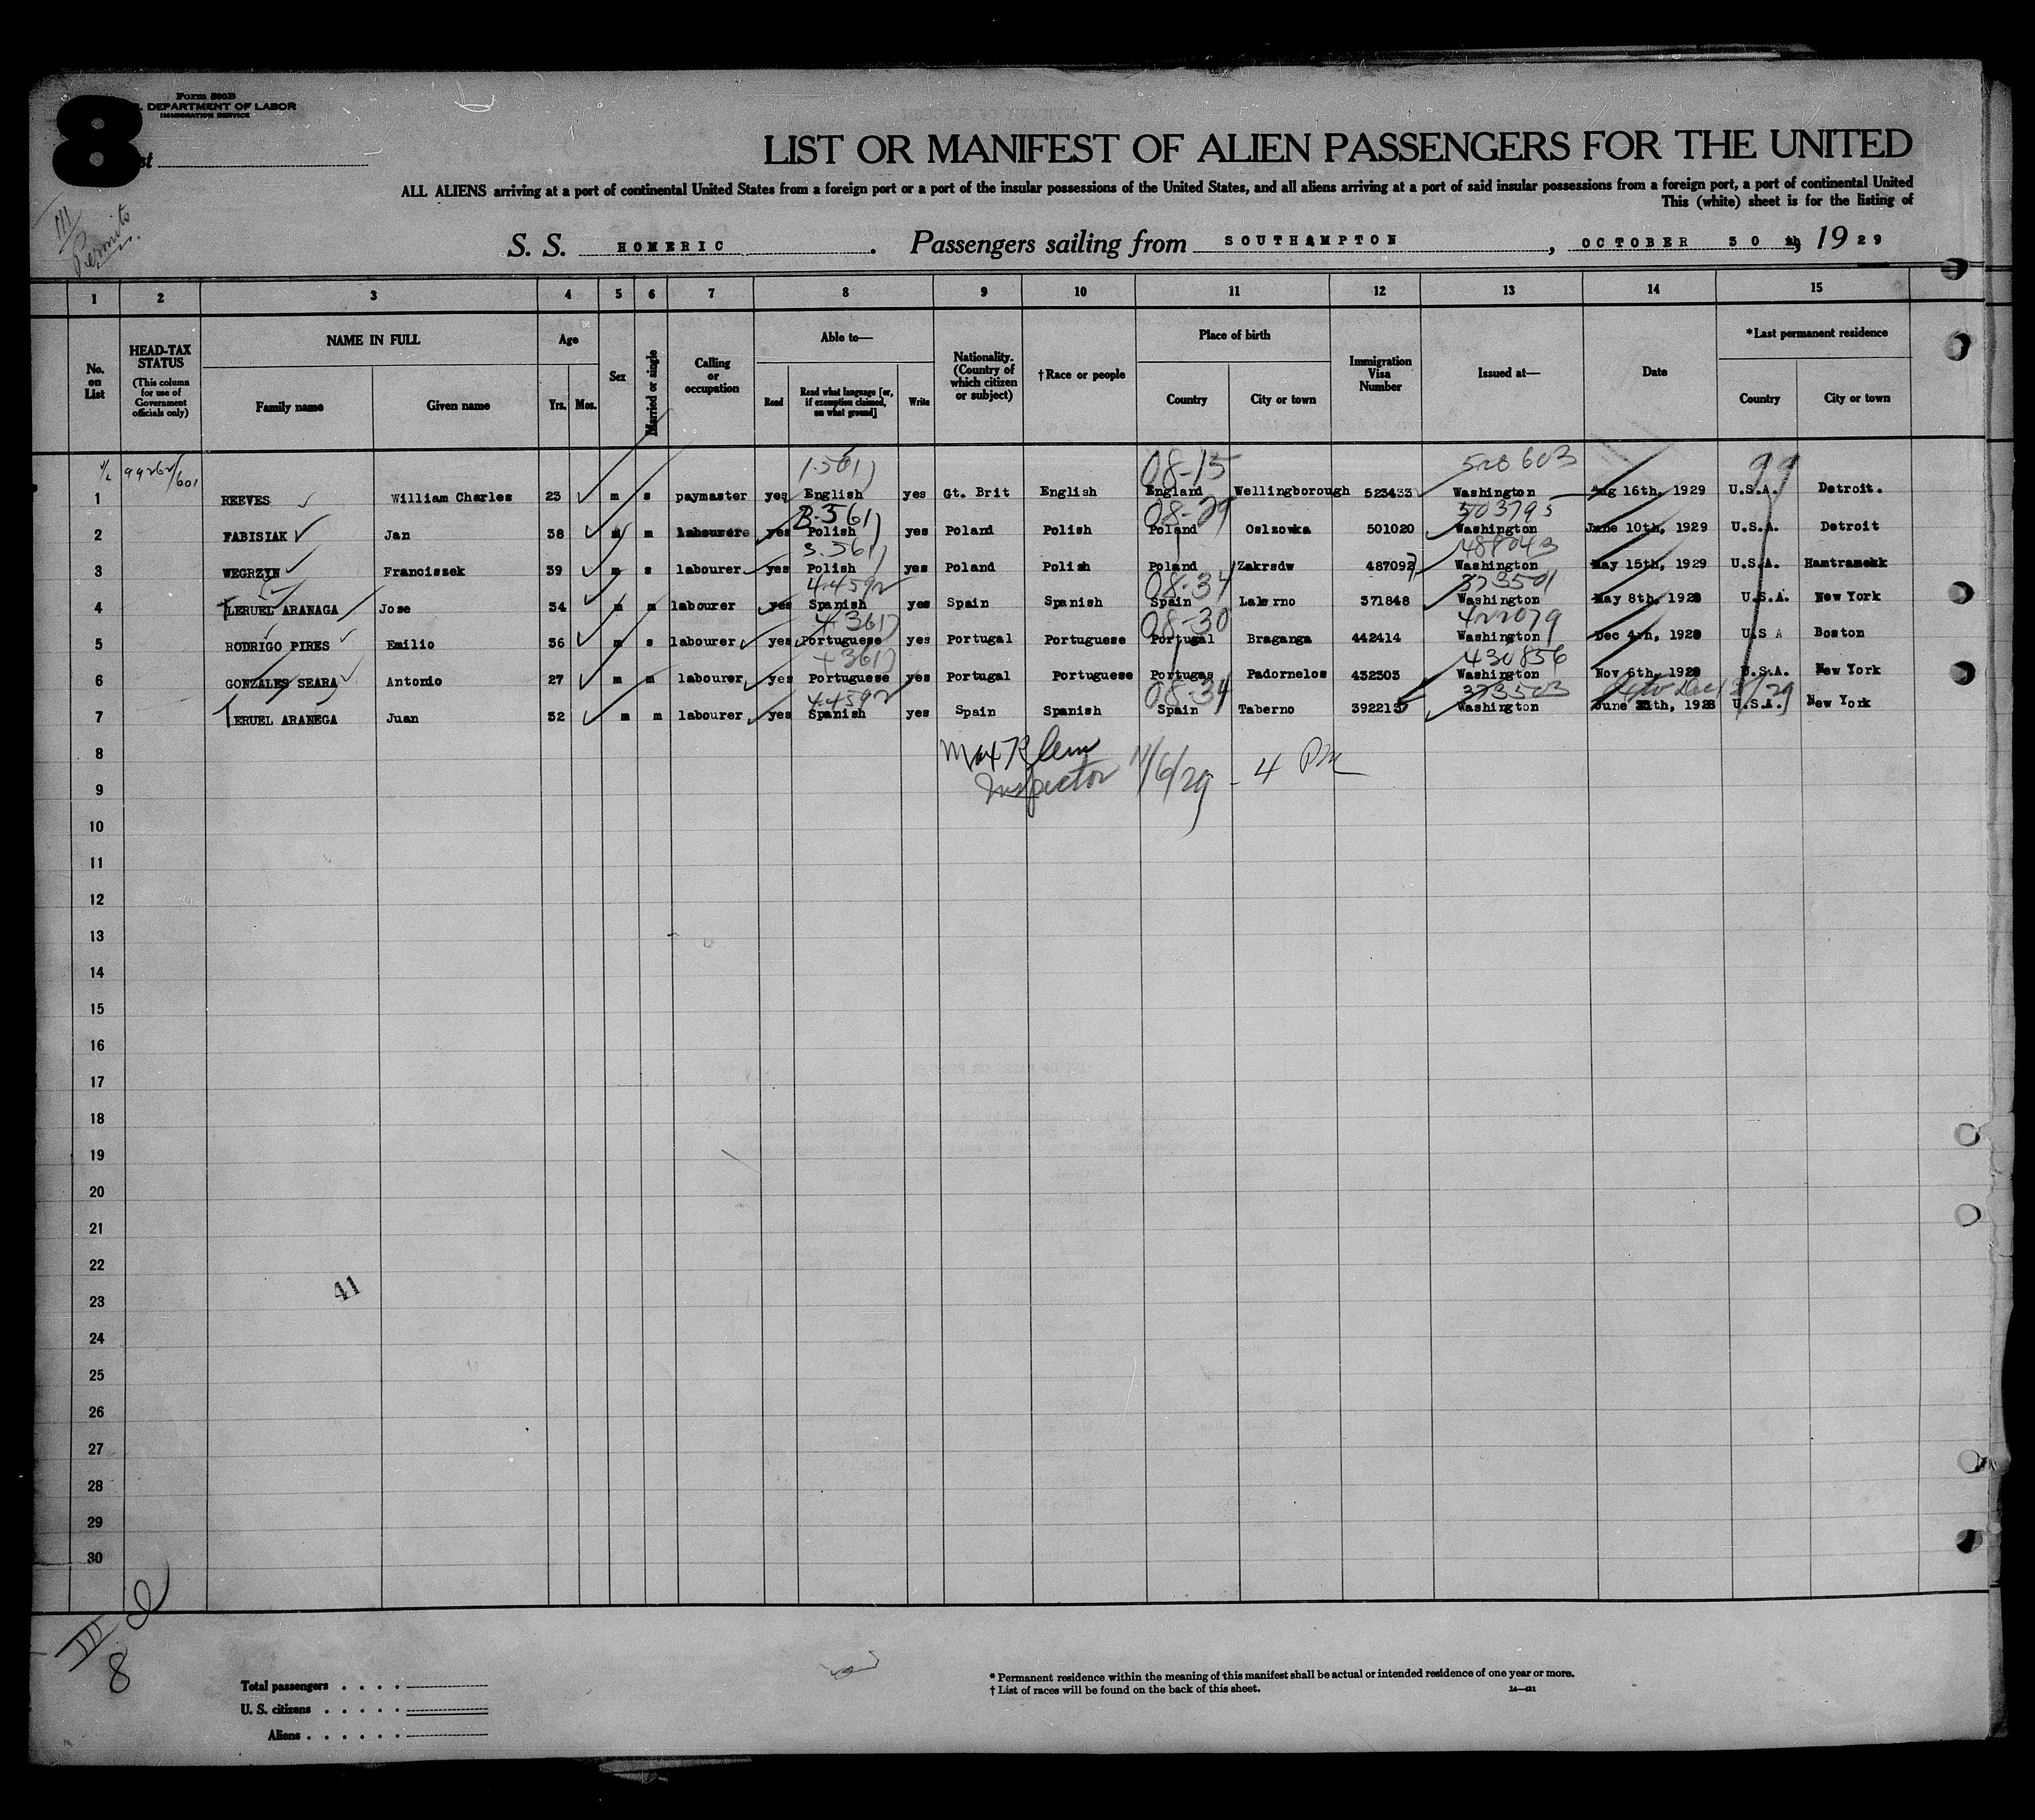 8
Form 500B
DEPARTMENT OF LABOR
IMMIGRATION SERVICE
LIST OR MANIFEST OF ALIEN PASSENGERS FOR THE UNITED
ALL ALIENS arriving at a port of continental United States from a foreign port or a port of the insular possessions of the United States, and all aliens arriving at a port of said insular possessions from a foreign port, a port of continental United
This (white) sheet is for the listing of
III
Permits.
S. S. HOMERIC. Passengers sailing from SOUTHAMPTON, OCTOBER 30 th, 1929
1 2 3 4 5 6 7 8 9 10 11 12 13 14 15
No. on List
HEAD-TAX STATUS
(This column for use of Government officials only)
NAME IN FULL
Family name Given name
Age
Yrs. Mos.
Sex
Married or single
Calling or occupation
Able to—
Read Read what language [or, if exemption claimed, on what ground] Write
Nationality. (Country of which citizen or subject)
†Race or people
Place of birth
Country City or town
Immigration Visa Number
Issued at—
Date
*Last permanent residence
Country City or town
99262/601 08-15 99
1 REEVES William Charles 23 m s paymaster yes English yes Gt. Brit English England Wellingborough 523433 Washington Aug 16th, 1929 U.S.A. Detroit.
08-29 503795
2 FABISIAK Jan 38 m m labourere yes Polish yes Poland Polish Poland Oslzowka 501020 Washington June 10th, 1929 U.S.A. Detroit
488043
3 WEGRZYN Franciszek 39 m s labourer yes Polish yes Poland Polish Poland Zakrsdw 487092 Washington May 15th, 1929 U.S.A. Hamtramekk
08-34 373501
4 LERUEL ARANAGA Jose 34 m m labourer yes Spanish yes Spain Spanish Spain 371848 Washington May 8th, U.S.A. New York
08-30 422079
5 RODRIGO PIRES Emilio 36 m s labourer yes Portuguese yes Portugal Portuguese Portugal Braganga 442414 Washington Dec 4th, U.S A Boston
430856
6 GONZALES SEARA Antonio 27 m m labourer yes Portuguese yes Portugal Portuguese Portugas Padornelos 432303 Washington Nov 6th, U.S.A. New York
08-34 373503
7 TERUEL ARANEGA Juan 32 m m labourer yes Spanish yes Spain Spanish Spain Taberno 392213 Washington June 1928 U.S.A. New York
8
Inspector 11/6/29 - 4 PM
9
10
11
12
13
14
15
16
17
18
19
20
21
22
41
23
24
25
26
27
28
29
30
III
8
Total passengers . . . .
U. S. citizens . . . . .
Aliens . . . . . .
* Permanent residence within the meaning of this manifest shall be actual or intended residence of one year or more.
† List of races will be found on the back of this sheet.